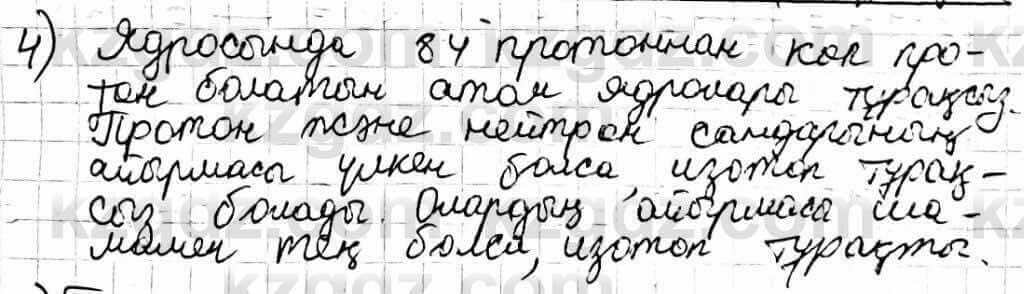 4) Ядросында 84 протоннан көп про-
тон болатын атом ядролары тұрақсыз.
Протон және нейтрон сандарының
айырмасы үлкен болса, изотоп тұрақ-
сыз болады. Олардың айырмасы ша-
мамен тең болса, изотоп тұрақты.